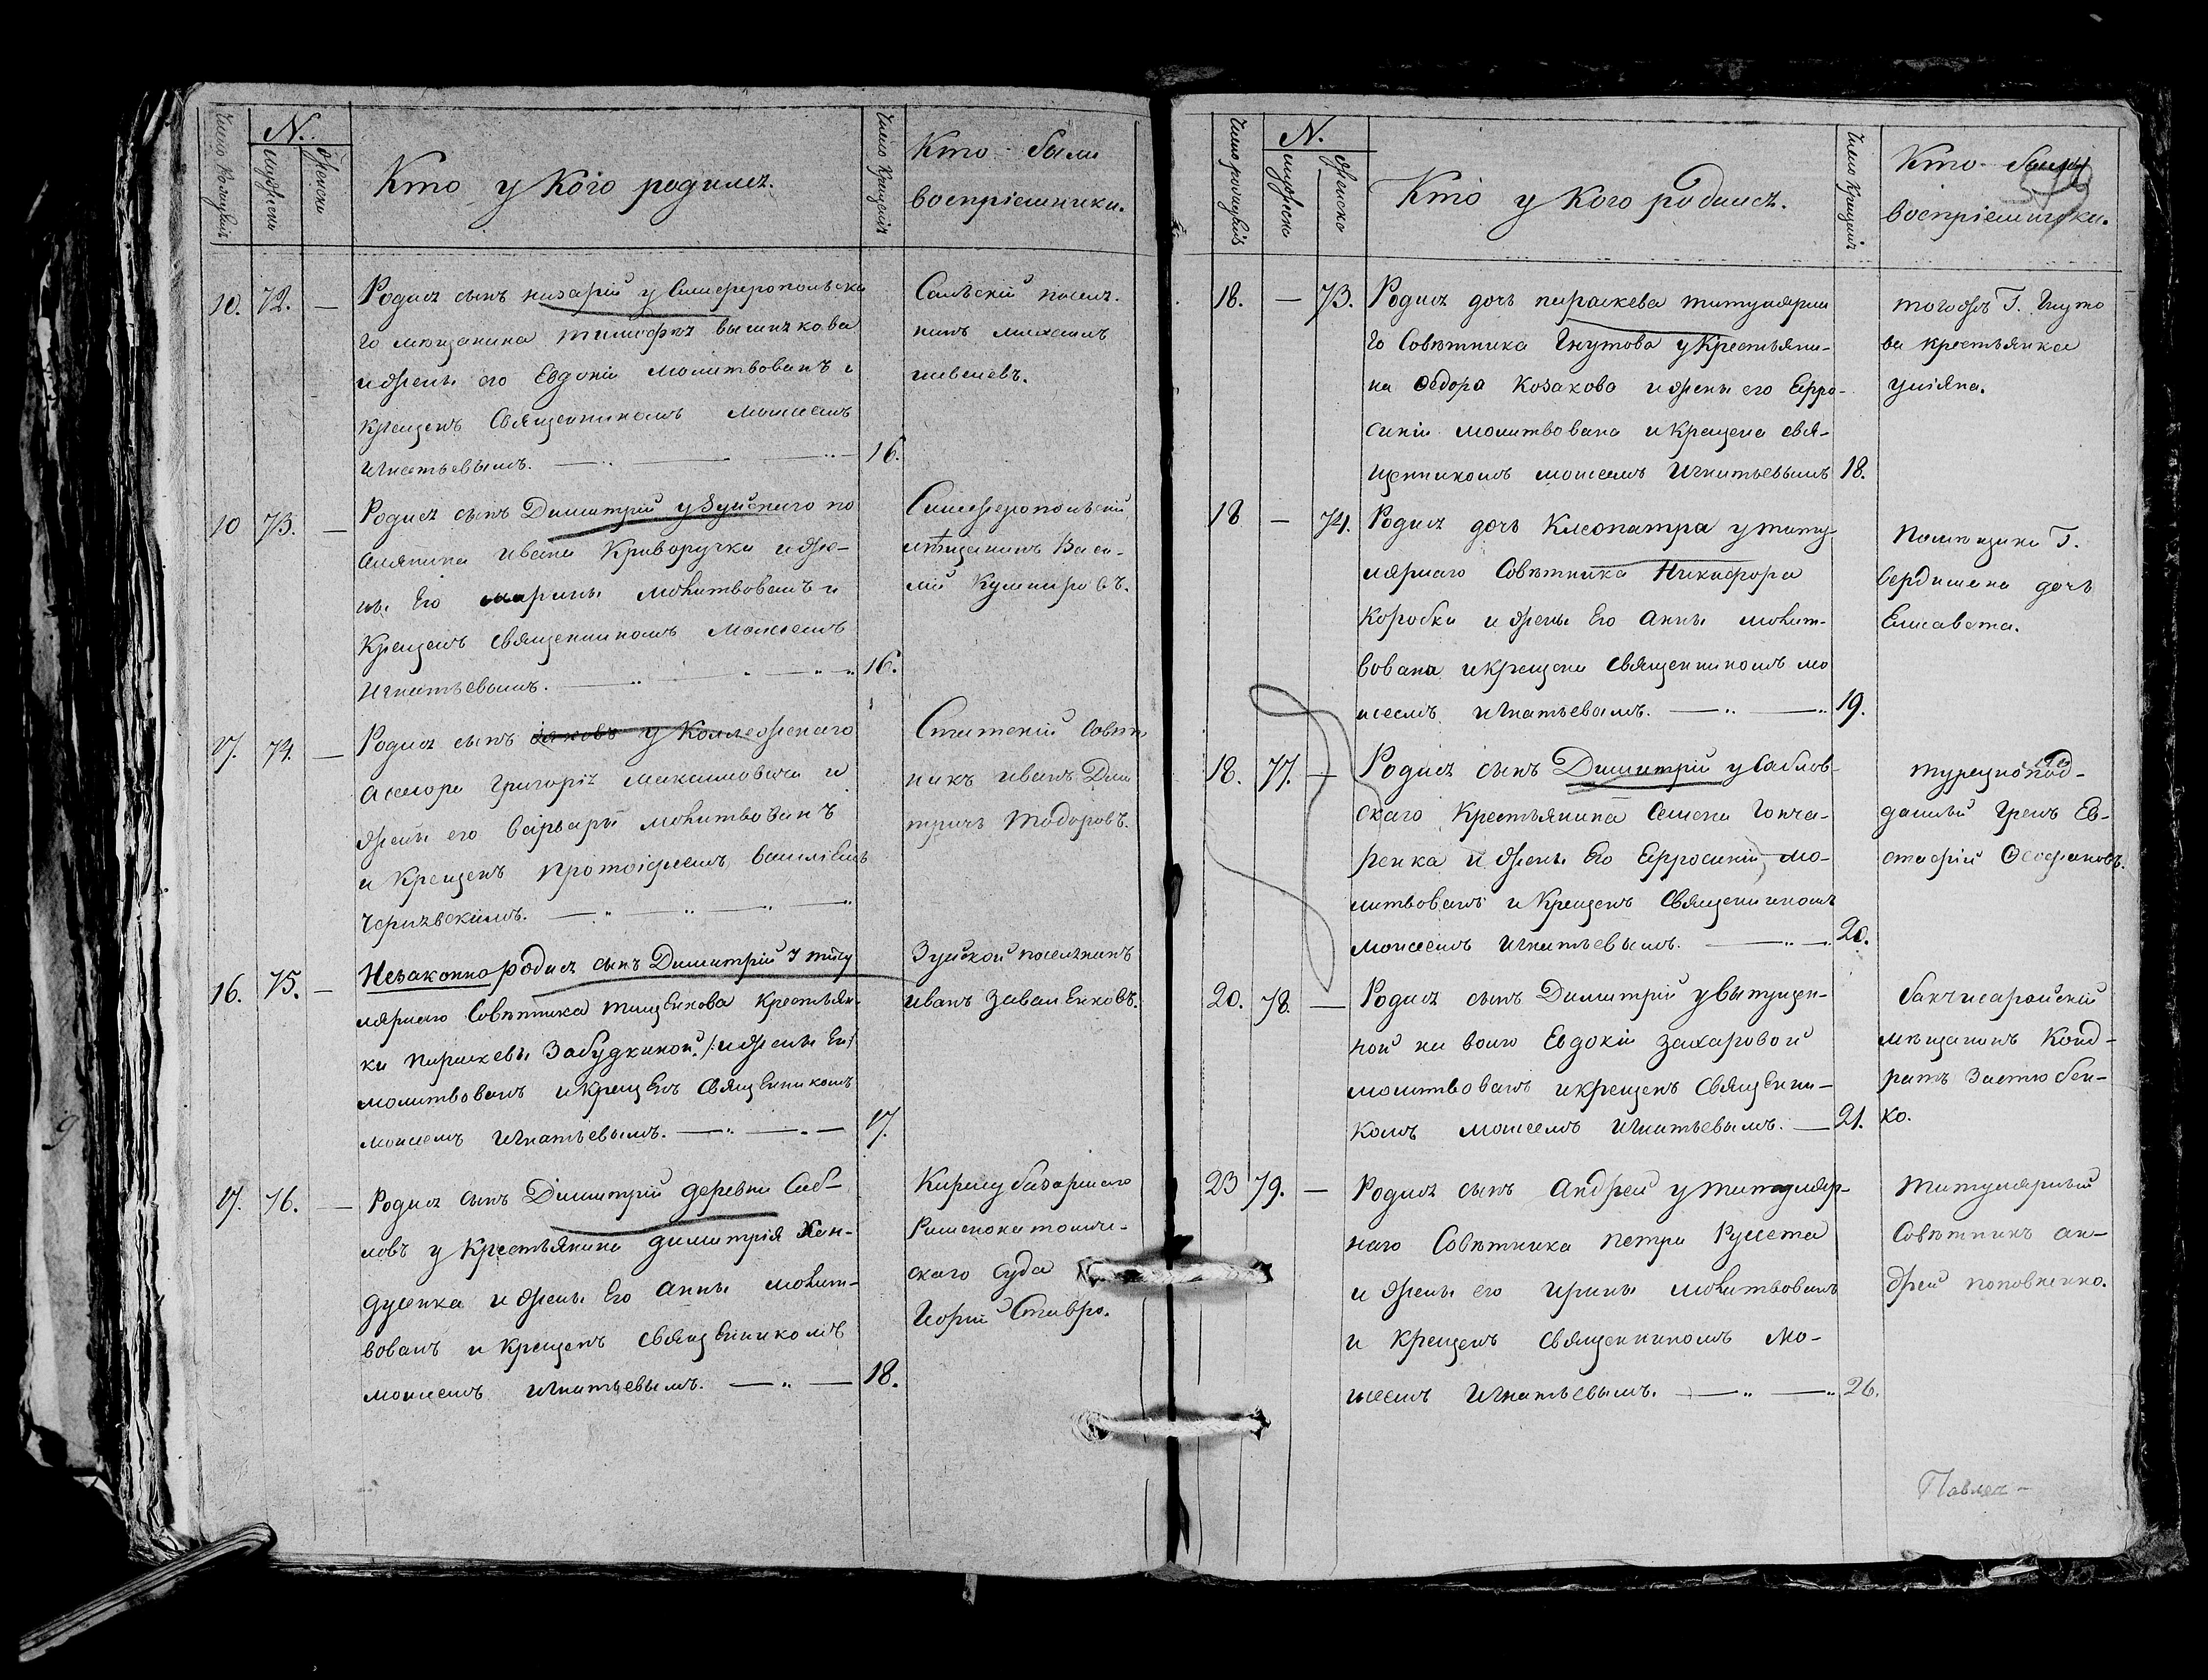 Число рожденія
N.
мужеска
женска
Кто у кого родился.
Число крещенія
Кто были
воспріемники.
10. 72. —
Родился сынъ назарій у Симферопольска
го мещанина тимофея
и жены его Евдокіи молитвованъ и
крещенъ Священникомъ моисеемъ
Игнатьевымъ. — 16.
посел.
нинъ михаилъ
10 73. —
Родился сынъ Димитрій у Зуйскаго по
селянина ивана Криворучка и же-
ны Его марины молитвованъ и
Крещенъ священникомъ моисеемъ
Игнатьевымъ. — 16.
Симферополскій
мѣщанинъ Васи-
лій Кушнировъ.
17. 74. —
Родился сынъ яковъ у Коллежскаго
Асесора григорія максимовича и
жены его варвары молитвованъ
и Крещенъ протоіереемъ василіемъ
Чернѣвскимъ. —
Статскій Совѣт
никъ иванъ Дми
тричъ тодоровъ.
16. 75. —
Незаконно родился сынъ Димитрій у титу
лярнаго Совѣтника тищенкова Крестьян-
ки параскевы Забудкиной /: и жены Ея/
молитвованъ и крещенъ Священникомъ
моисеемъ Игнатьевымъ. — 17.
Зуйской поселянинъ
иванъ Заваленковъ.
17. 76. —
Родился сынъ Димитрій деревни Саб-
ловъ у Крестьянина димитрія Хан-
дусенка и жены Его анны молит-
вованъ и крещенъ священникомъ
моисеемъ игнатьевымъ. — 18.
Карасубазарскаго
скаго суда
Георгій Ставро.
Число рожденія
N.
мужеска
женска
Кто у кого родился.
Число Крещенія
Кто были
воспріемники.
18. — 73.
Родилась дочь параскева титулярна
го Совѣтника Гнутова у Крестьяни-
на Федора Козакова и жены его Евфро-
синіи молитвована и крещена свя-
щенникомъ моисеемъ Игнатьевымъ 18.
тогожъ Г. Гнуто
ва крестьянка
уліяна.
18 — 74.
Родилась дочь Клеопатра у титу
лярнаго Совѣтника Никифора
Коробки и жены Его Анны молит-
вована и крещена священникомъ мо
исеемъ игнатьевымъ. — 19.
Помѣщика Г.
дочь
Елисавета.
18. 77. —
Родился сынъ Димитрій у Саблов-
скаго Крестьянина Семена Гонча-
ренка и жены Его Евфросиніи мо-
литвованъ и крещенъ Священникомъ
моисеемъ игнатьевымъ. — 20.
турецко под-
даный Грекъ Ев-
стафій Феофановъ.
20. 78. —
Родился сынъ Димитрій у выпущен-
ной на волю Евдокіи захаровой
молитвованъ и крещенъ Священни-
комъ моисеемъ Игнатьевымъ. — 21.
бахчисарайскій
мѣщанинъ Конд-
ратъ
ко.
23 79. —
Родился сынъ Андрей у титуляр-
наго Совѣтника петра Руссета
и жены его ирины молитвованъ
и крещенъ священникомъ мо-
исеемъ Игнатьевымъ. — 26.
титулярный
Совѣтникъ ан-
дрей поповиченко.